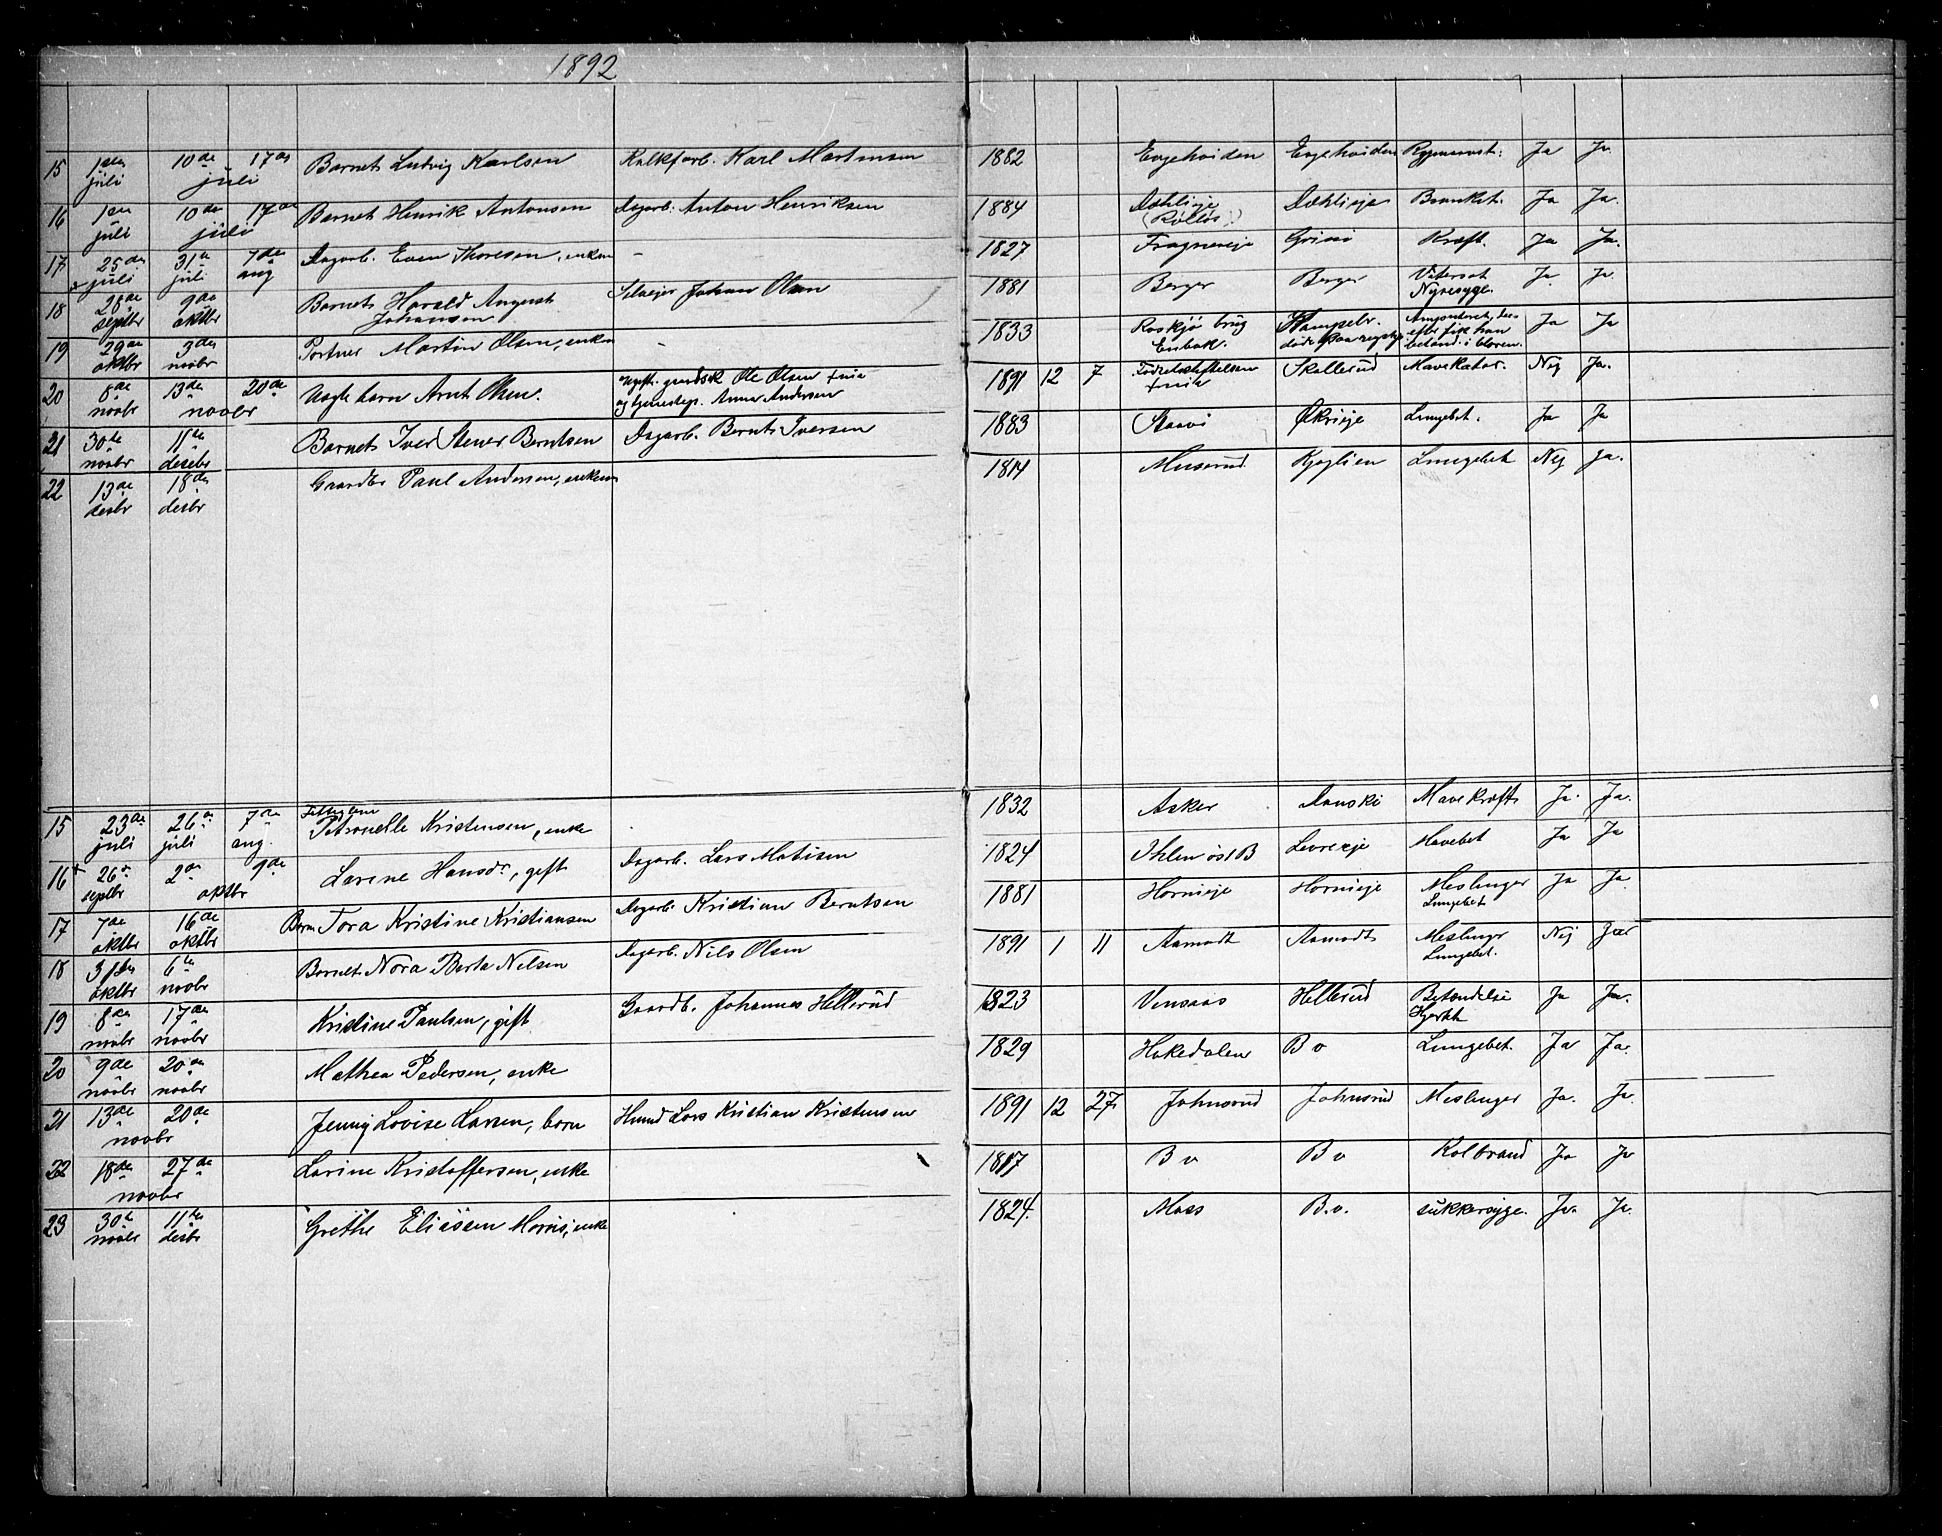 1892
15 1ste juli 10de 17de juli Barnet Ludvig Karlsen Kalkfarb. Karl Martinsen 1882 Engehviden Engehviden Ja Ja
16 1ste juli 10de 17de juli Barnet Henrik Antonsen Dagarb. Anton Henriksen 1884 Dæhlieje Dæhlieje Ja Ja.
17 25de juli 31te juli 7de aug Dagarb. Even Thoresen, enkem — 1827 Frognereje Grini Kræft. Ja Ja.
18 28de septbr 9de oktbr Barnet Harald August Johansen Selveier Johan Olsen 1881 Berger Berger Vatersot Nyresyge. Ja Ja.
19 29de oktbr 3de novbr Portner Martin Olsen, enkem — 1833 Roskjø brug Enbak. Ja Ja
20 8de novbr 13de 20de novbr Uægte barn Arnt Olsen. Ugift. gaardsk Ole Olsen
og tjenestep. Anna Andersen 1891 12 7 Fødselsstiftelsen Skellerud Mavekatar. Nej Ja.
21 30te novbr 11te desebr Barnet Iver Stener Berntsen Dagarb. Bernt Iversen 1883 Staavi Økrieje Lungebet. Ja Ja
22 13de desbr 18de desbr Gaardbr Paul Andersen, enkem 1814 Muserud Kjaglien Lungebet Nej Ja.
15 23de juli 26de juli 7de aug. Petronelle Kristensen, enke 1832 Asker Danski Mavekræft Ja. Ja.
16 26de septbr 2den 9de oktbr Larine Hansdr, gift Dagarb. Lars Matisen 1824 Ihlen Levreeje Mavebet Ja Ja
17 7de oktbr 16de oktbr Barn Tora Kristine Kristiansen Dagarb. Kristian Berntsen 1881 Hornieje Hornieje Meslinger Lungebet Ja Ja
18 31te oktbr 6te novbr Barnet Nora Berta Nilsen Dagarb. Nils Olsen 1891 1 11 Aamodt Aamodt Meslinger Lungebet. Nej Ja
19 8de novbr 17de novbr Kristine Paulsen, gift Gaardb. Johannes Hellerud 1823 Vensaas Hellerud Betændelse Hjertet Ja Ja.
20 9de novbr 20de novbr Mathea Pedersen, enke 1829 Hakedalen Bo Lungebet. Ja Ja.
21 13de 20de novbr Jenny Lovise Larsen, barn Husmd Lars Kristian Kristensen 1891 12 27 Johnsrud Johnsrud Meslinger Ja. Ja.
22 18de 27de novbr Larine Kristoffersen, enke 1817 Bo Bo Kolbrand Ja Ja
23 30te novbr 11te desbr Grethe Eliassen Morris, enke 1824. Moss Bo. sukkersyge. Ja. Ja.